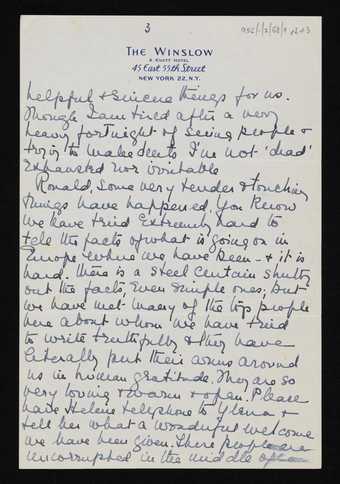 3
THE WINSLOW
A KNOTT HOTEL
45 East 55th Street
NEW YORK 22, N.Y.
helpful & sincere things for us.
Though I am tired after a very
heavy fortnight of seeing people &
trying to make deals I'm not 'dead'
exhausted nor irritable
Ronald, some very tender & touching
things have happened. You know
we have tried extremely hard to
tell the facts of what is going on in
Europe where we have been - & it is
hard. There is a steel curtain shutting
out the facts, even simple ones; but
we have met many of the top people
here about whom we have tried
to write truthfully & they have
literally put their arms around
us in human gratitude. They are so
very loving & warm & open. Please
have Helene telephone to Ylena &
tell her what a wonderful welcome
we have been given. These people are
uncorrupted in the middle of